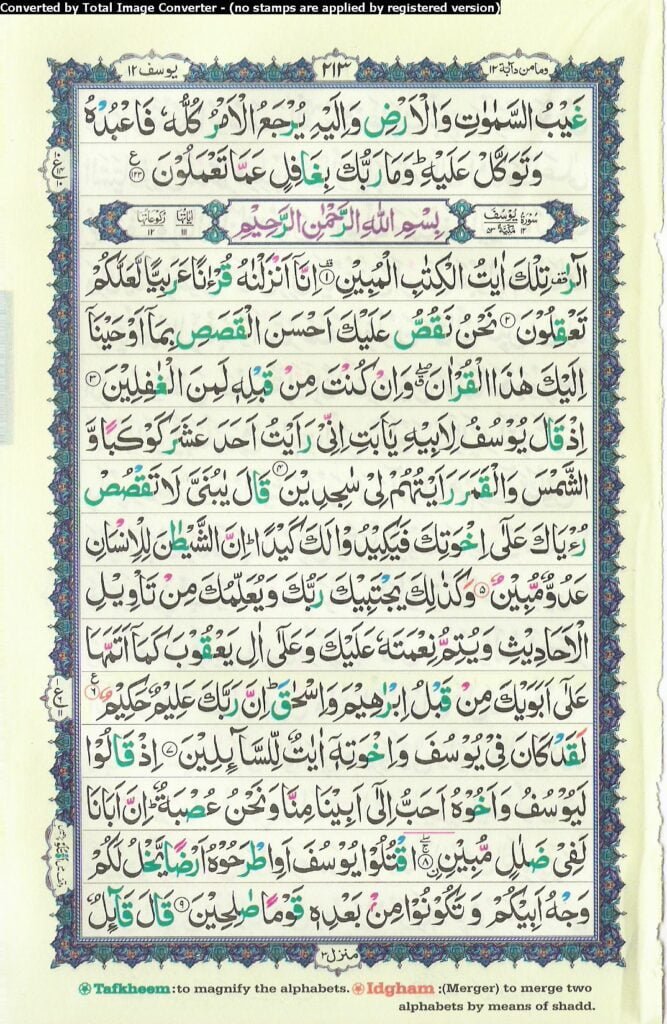 Converted by Total Image Converter - (no stamps are applied by registered version)
يوسف ١٢
٢١٣
وما من دآبة ١٢
غَيْبُ السَّمٰوٰتِ وَالْاَرْضِ وَاِلَيْهِ يُرْجَعُ الْاَمْرُ كُلُّهٗ فَاعْبُدْهُ
وَتَوَكَّلْ عَلَيْهِ ؕ وَمَا رَبُّكَ بِغَافِلٍ عَمَّا تَعْمَلُوْنَ ﴿۱۲۳﴾
سُوْرَةُ يُوْسُفَ ١٢ مَكِّيَّةٌ ٥٣
بِسْمِ اللّٰهِ الرَّحْمٰنِ الرَّحِيْمِ
اٰيَاتُهَا ١١١
رُكُوْعَاتُهَا ١٢
الٓرٰ تِلْكَ اٰيٰتُ الْكِتٰبِ الْمُبِيْنِ ﴿۱﴾ اِنَّاۤ اَنْزَلْنٰهُ قُرْءٰنًا عَرَبِيًّا لَّعَلَّكُمْ
تَعْقِلُوْنَ ﴿۲﴾ نَحْنُ نَقُصُّ عَلَيْكَ اَحْسَنَ الْقَصَصِ بِمَاۤ اَوْحَيْنَاۤ
اِلَيْكَ هٰذَا الْقُرْاٰنَ ۖ وَاِنْ كُنْتَ مِنْ قَبْلِهٖ لَمِنَ الْغٰفِلِيْنَ ﴿۳﴾
اِذْ قَالَ يُوْسُفُ لِاَبِيْهِ يٰۤاَبَتِ اِنِّىْ رَاَيْتُ اَحَدَ عَشَرَ كَوْكَبًا وَّ
الشَّمْسَ وَالْقَمَرَ رَاَيْتُهُمْ لِىْ سٰجِدِيْنَ ﴿۴﴾ قَالَ يٰبُنَىَّ لَا تَقْصُصْ
رُءْيَاكَ عَلٰٓى اِخْوَتِكَ فَيَكِيْدُوْا لَكَ كَيْدًا ؕ اِنَّ الشَّيْطٰنَ لِلْاِنْسَانِ
عَدُوٌّ مُّبِيْنٌ ﴿۵﴾ وَكَذٰلِكَ يَجْتَبِيْكَ رَبُّكَ وَيُعَلِّمُكَ مِنْ تَاْوِيْلِ
الْاَحَادِيْثِ وَيُتِمُّ نِعْمَتَهٗ عَلَيْكَ وَعَلٰٓى اٰلِ يَعْقُوْبَ كَمَاۤ اَتَمَّهَا
عَلٰٓى اَبَوَيْكَ مِنْ قَبْلُ اِبْرٰهِيْمَ وَاِسْحٰقَ ؕ اِنَّ رَبَّكَ عَلِيْمٌ حَكِيْمٌ ﴿۶﴾
لَقَدْ كَانَ فِىْ يُوْسُفَ وَاِخْوَتِهٖۤ اٰيٰتٌ لِّلسَّآئِلِيْنَ ﴿۷﴾ اِذْ قَالُوْا
لَيُوْسُفُ وَاَخُوْهُ اَحَبُّ اِلٰٓى اَبِيْنَا مِنَّا وَنَحْنُ عُصْبَةٌ ؕ اِنَّ اَبَانَا
لَفِىْ ضَلٰلٍ مُّبِيْنٍ ﴿۸﴾ اۨقْتُلُوْا يُوْسُفَ اَوِ اطْرَحُوْهُ اَرْضًا يَّخْلُ لَكُمْ
وَجْهُ اَبِيْكُمْ وَتَكُوْنُوْا مِنْۢ بَعْدِهٖ قَوْمًا صٰلِحِيْنَ ﴿۹﴾ قَالَ قَآئِلٌ
منزل ٣
Tafkheem :to magnify the alphabets. Idgham :(Merger) to merge two
alphabets by means of shadd.